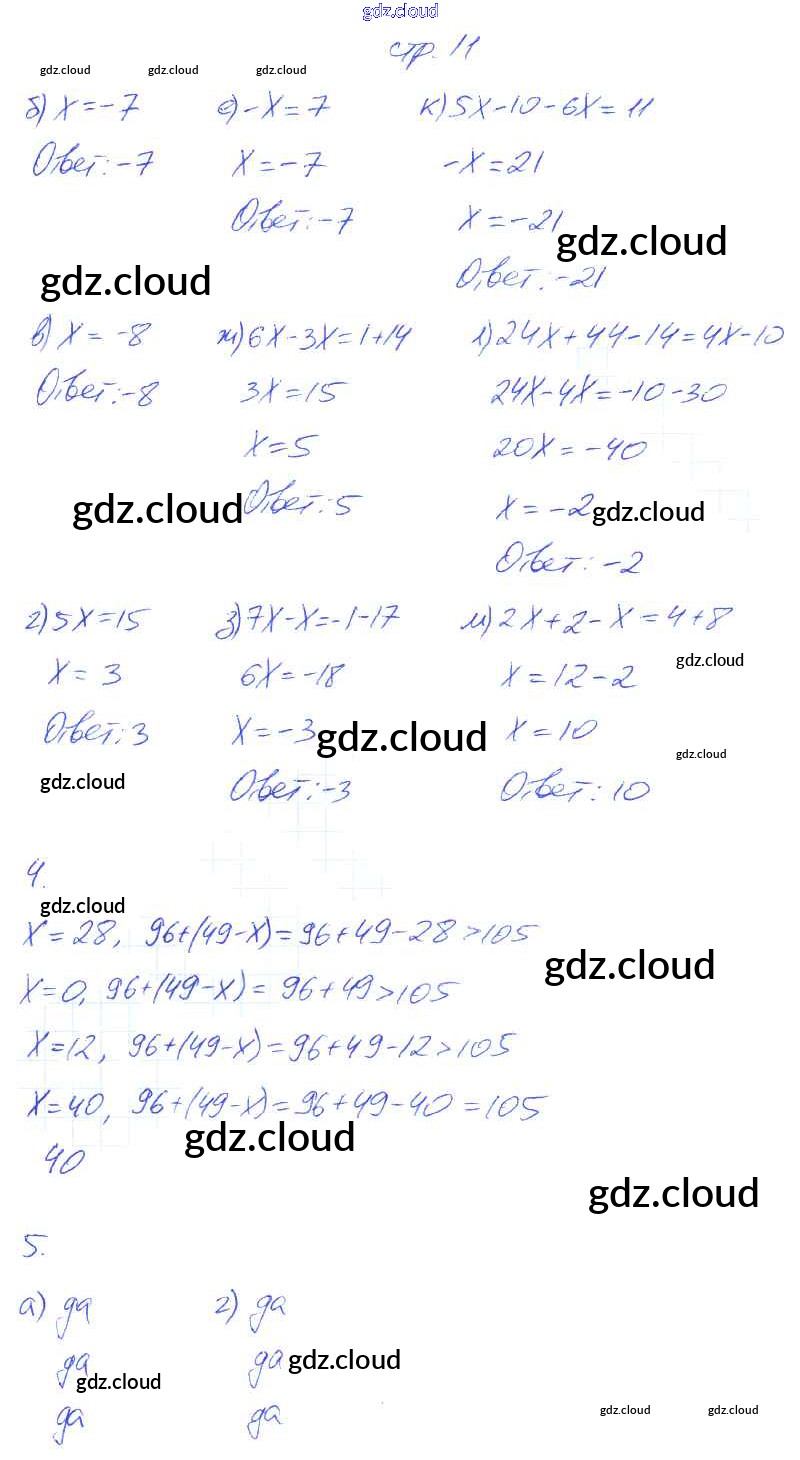 gdz.cloud
стр. 11
gdz.cloud gdz.cloud gdz.cloud
б) x = -7 е) -x = 7 к) 5x - 10 - 6x = 11
Ответ: -7 x = -7 -x = 21
Ответ: -7 x = -21
gdz.cloud
gdz.cloud Ответ: -21
в) x = -8 ж) 6x - 3x = 1 + 14 л) 24x + 44 - 14 = 4x - 10
Ответ: -8 3x = 15 24x - 4x = -10 - 30
x = 5 20x = -40
gdz.cloud Ответ: 5 x = -2 gdz.cloud
Ответ: -2
г) 5x = 15 з) 7x - x = -1 - 17 м) 2x + 2 - x = 4 + 8
gdz.cloud
x = 3 6x = -18 x = 12 - 2
Ответ: 3 x = -3 gdz.cloud x = 10
gdz.cloud
gdz.cloud Ответ: -3 Ответ: 10
4.
gdz.cloud
x = 28, 96 + (49 - x) = 96 + 49 - 28 > 105
gdz.cloud
x = 0, 96 + (49 - x) = 96 + 49 > 105
x = 12, 96 + (49 - x) = 96 + 49 - 12 > 105
x = 40, 96 + (49 - x) = 96 + 49 - 40 = 105
gdz.cloud
40
gdz.cloud
5.
а) да г) да
да да gdz.cloud
gdz.cloud
да да gdz.cloud gdz.cloud